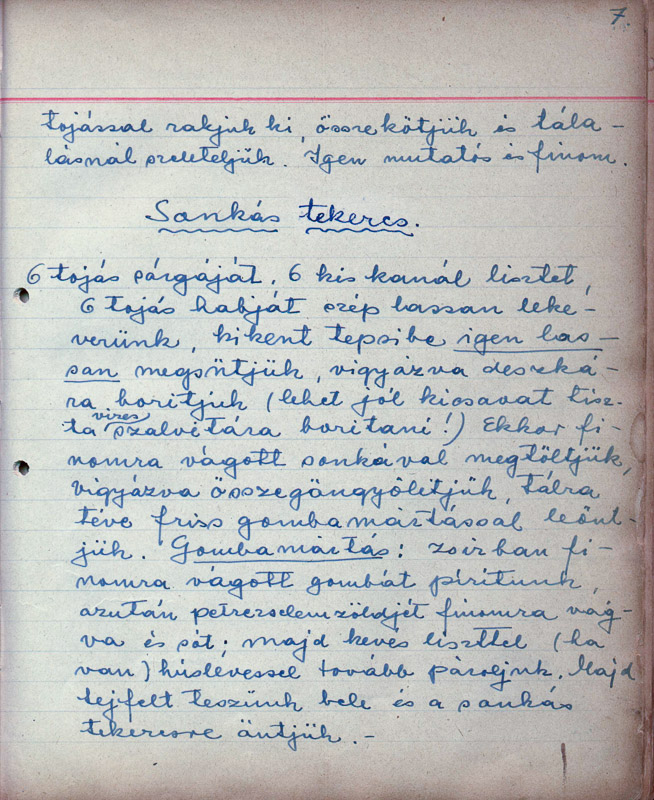 7.
tojással rakjuk ki, összekötjük és tála-
lásnál szeleteljük. Igen mutatós és finom.
Sonkás tekercs.
6 tojás sárgáját, 6 kis kanál lisztet,
6 tojás habját szép lassan leke-
verünk, kikent tepsibe igen las-
san megsütjük, vigyázva deszká-
ra borítjuk (lehet jól kicsavat tisz-
ta vizes szalvétára borítani!) Ekkor fi-
nomra vágott sonkával megtöltjük,
vigyázva összegöngyölitjük, tálra
téve friss gombamártással leönt-
jük. Gombamártás: zsirban fi-
nomra vágott gombát pirítunk,
azután petrezselemzöldjét finomra vág-
va és sót; majd kevés liszttel (ha
van) húslevessel tovább pároljuk. Majd
tejfelt teszünk bele és a sonkás
tekercsre öntjük.-